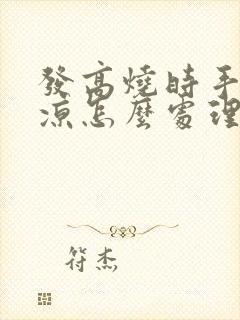 發高燒時手
涼怎麼處理
符杰